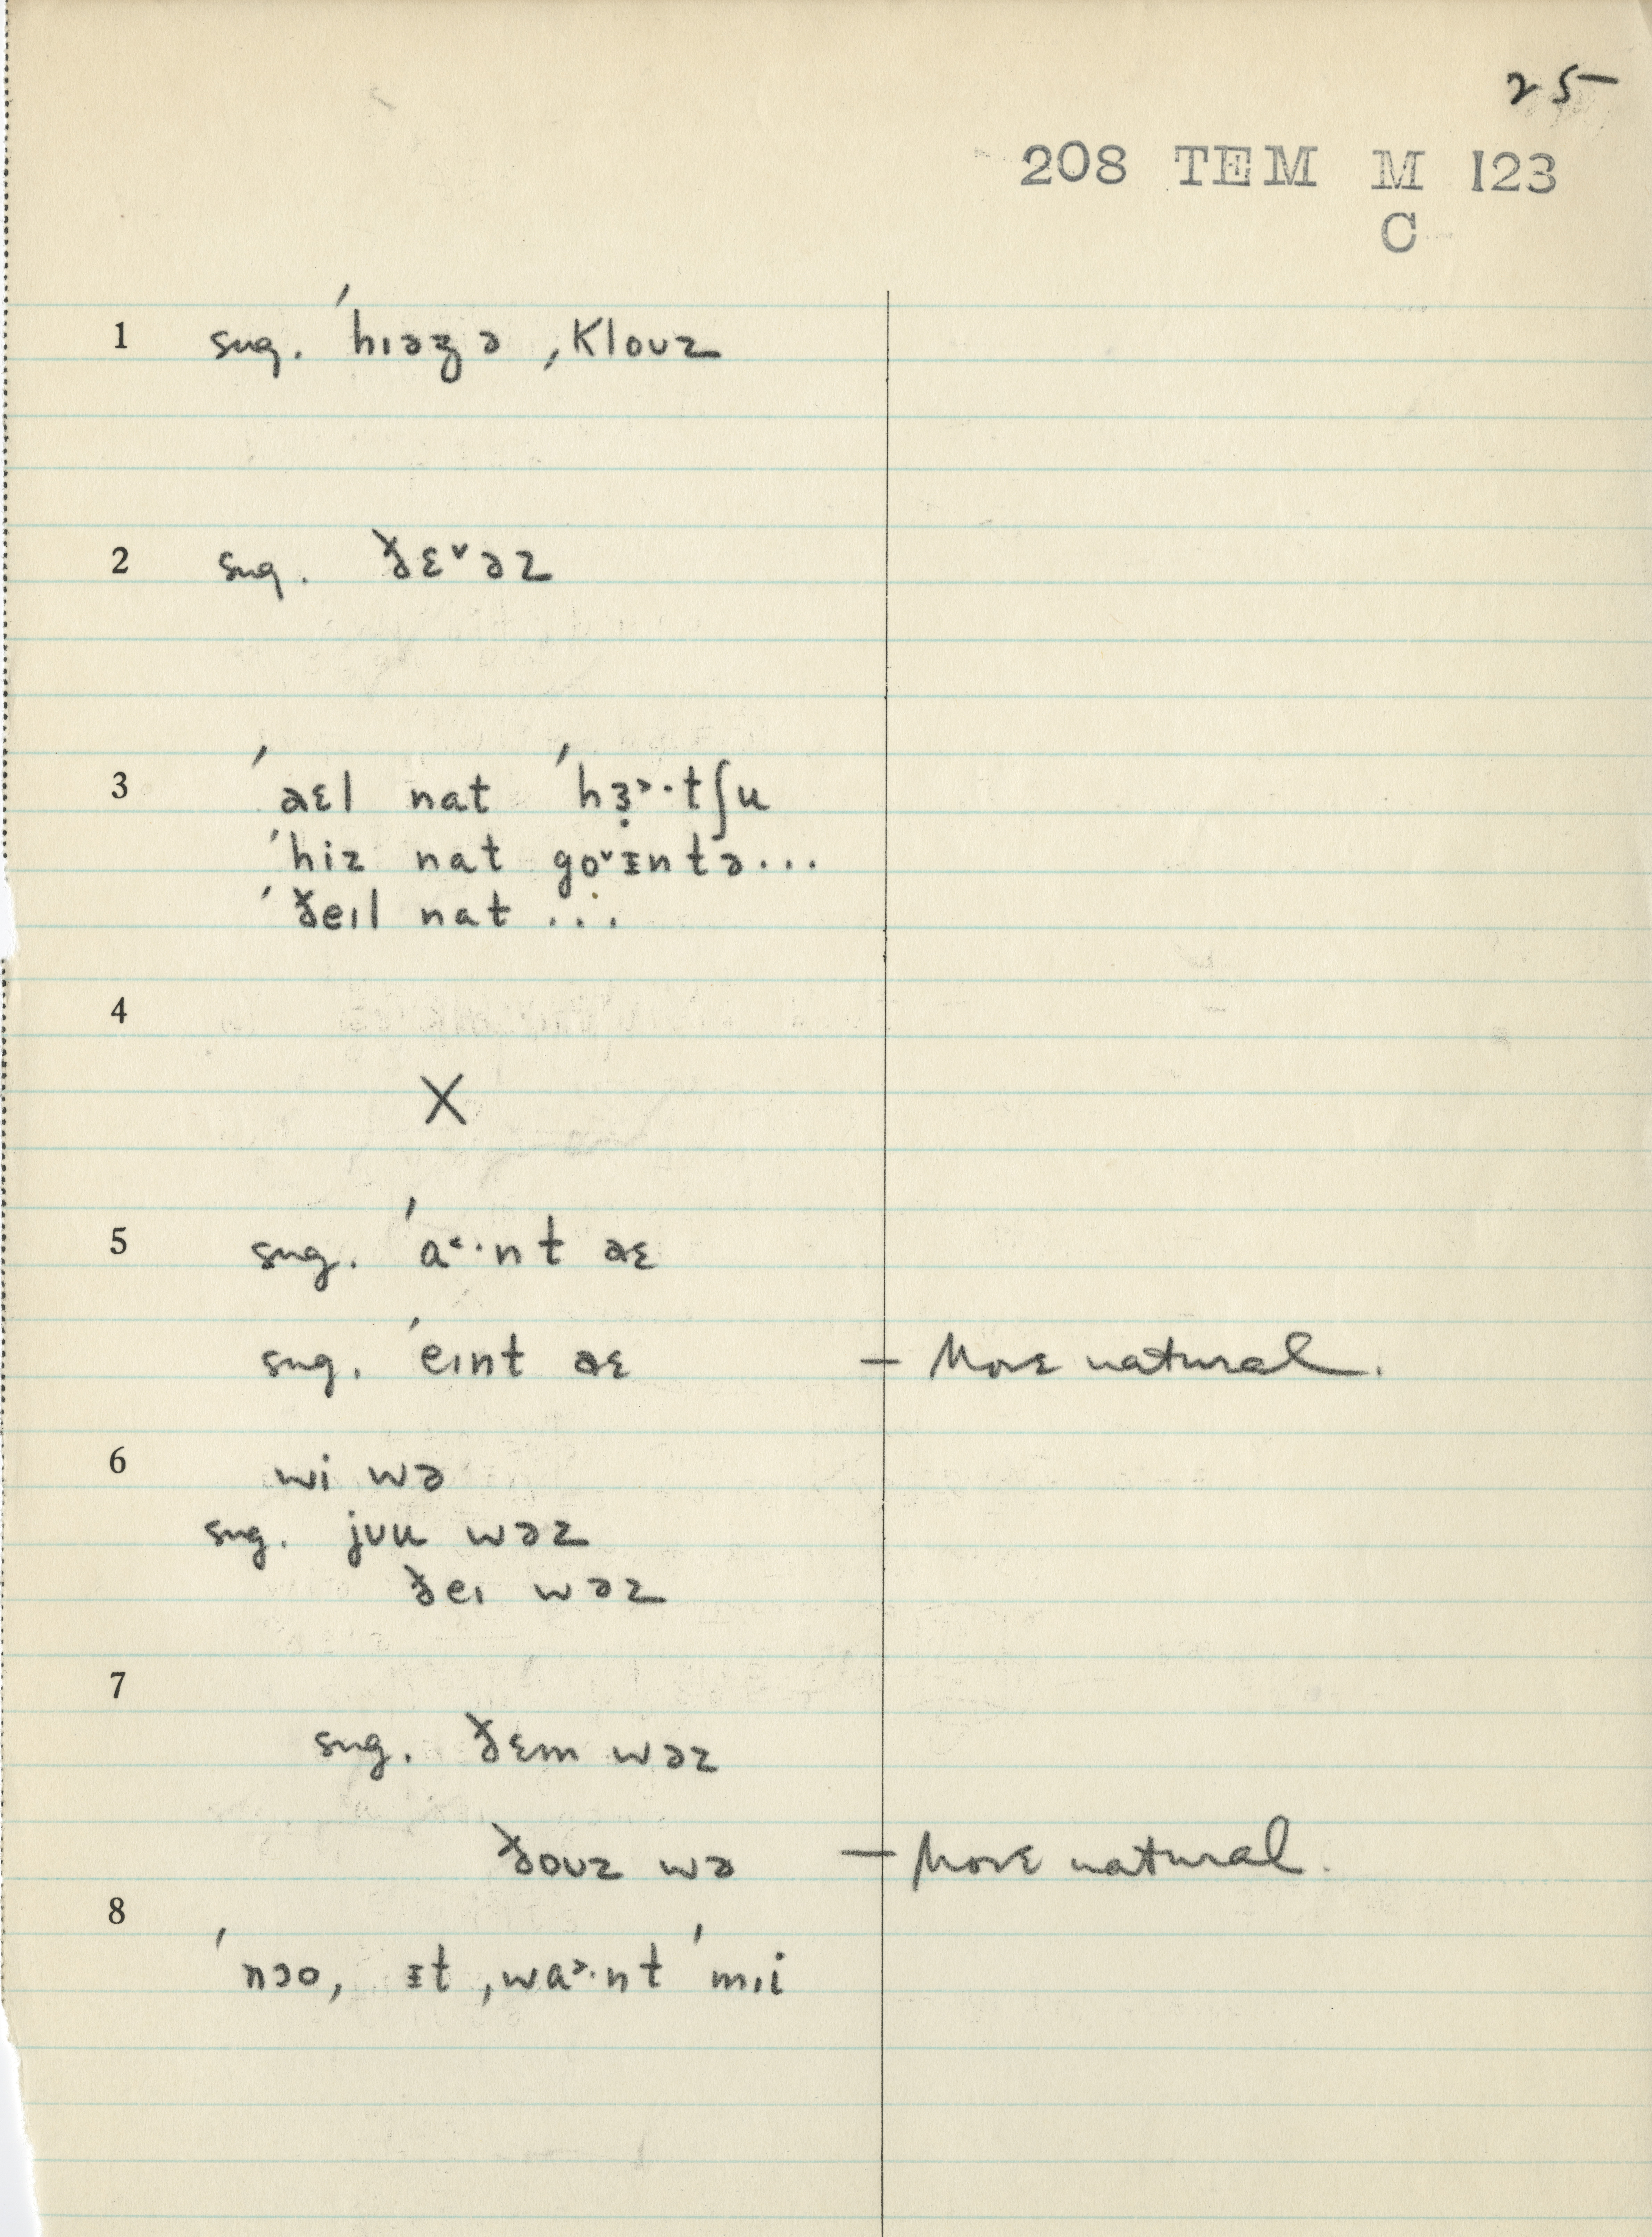 25
208 TEM M 123
C
1 sug. ˈhɪəz̜ ə ˌklouz
2 sug. ðɛ˅əz
3 ˈaɛl nat ˈhɜ̣˃·tʃu
ˈhiz nat go˅ɪntə...
ˈðeɪl nat ...
4
X
5 sug. ˈa˂·nt aɛ
sug. ˈeɪnt aɛ — More natural.
6 wi wə
sug. jʊu wəz
ðeɪ wəz
7
sug. ðɛm wəz
ðoʊz wə — More natural.
8
ˈnɔo, ɪt ˌwa˃·nt ˈmɪi